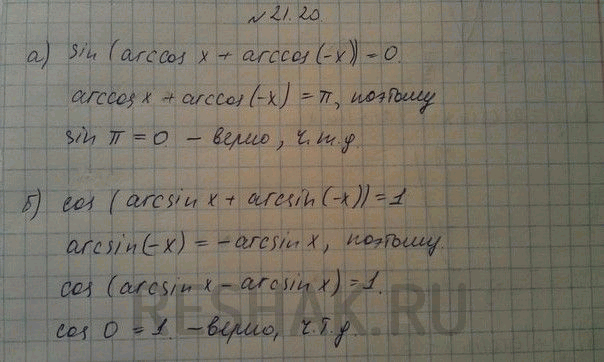 №21.20.
а) sin (arccos x + arccos(-x)) = 0.
arccos x + arccos(-x) = π, поэтому
sin π = 0 - верно, ч.т.д.
б) cos (arcsin x + arcsin(-x)) = 1
arcsin(-x) = -arcsin x, поэтому.
cos (arcsin x - arcsin x) = 1.
cos 0 = 1. - верно, ч.т.д.
RESHAK.RU